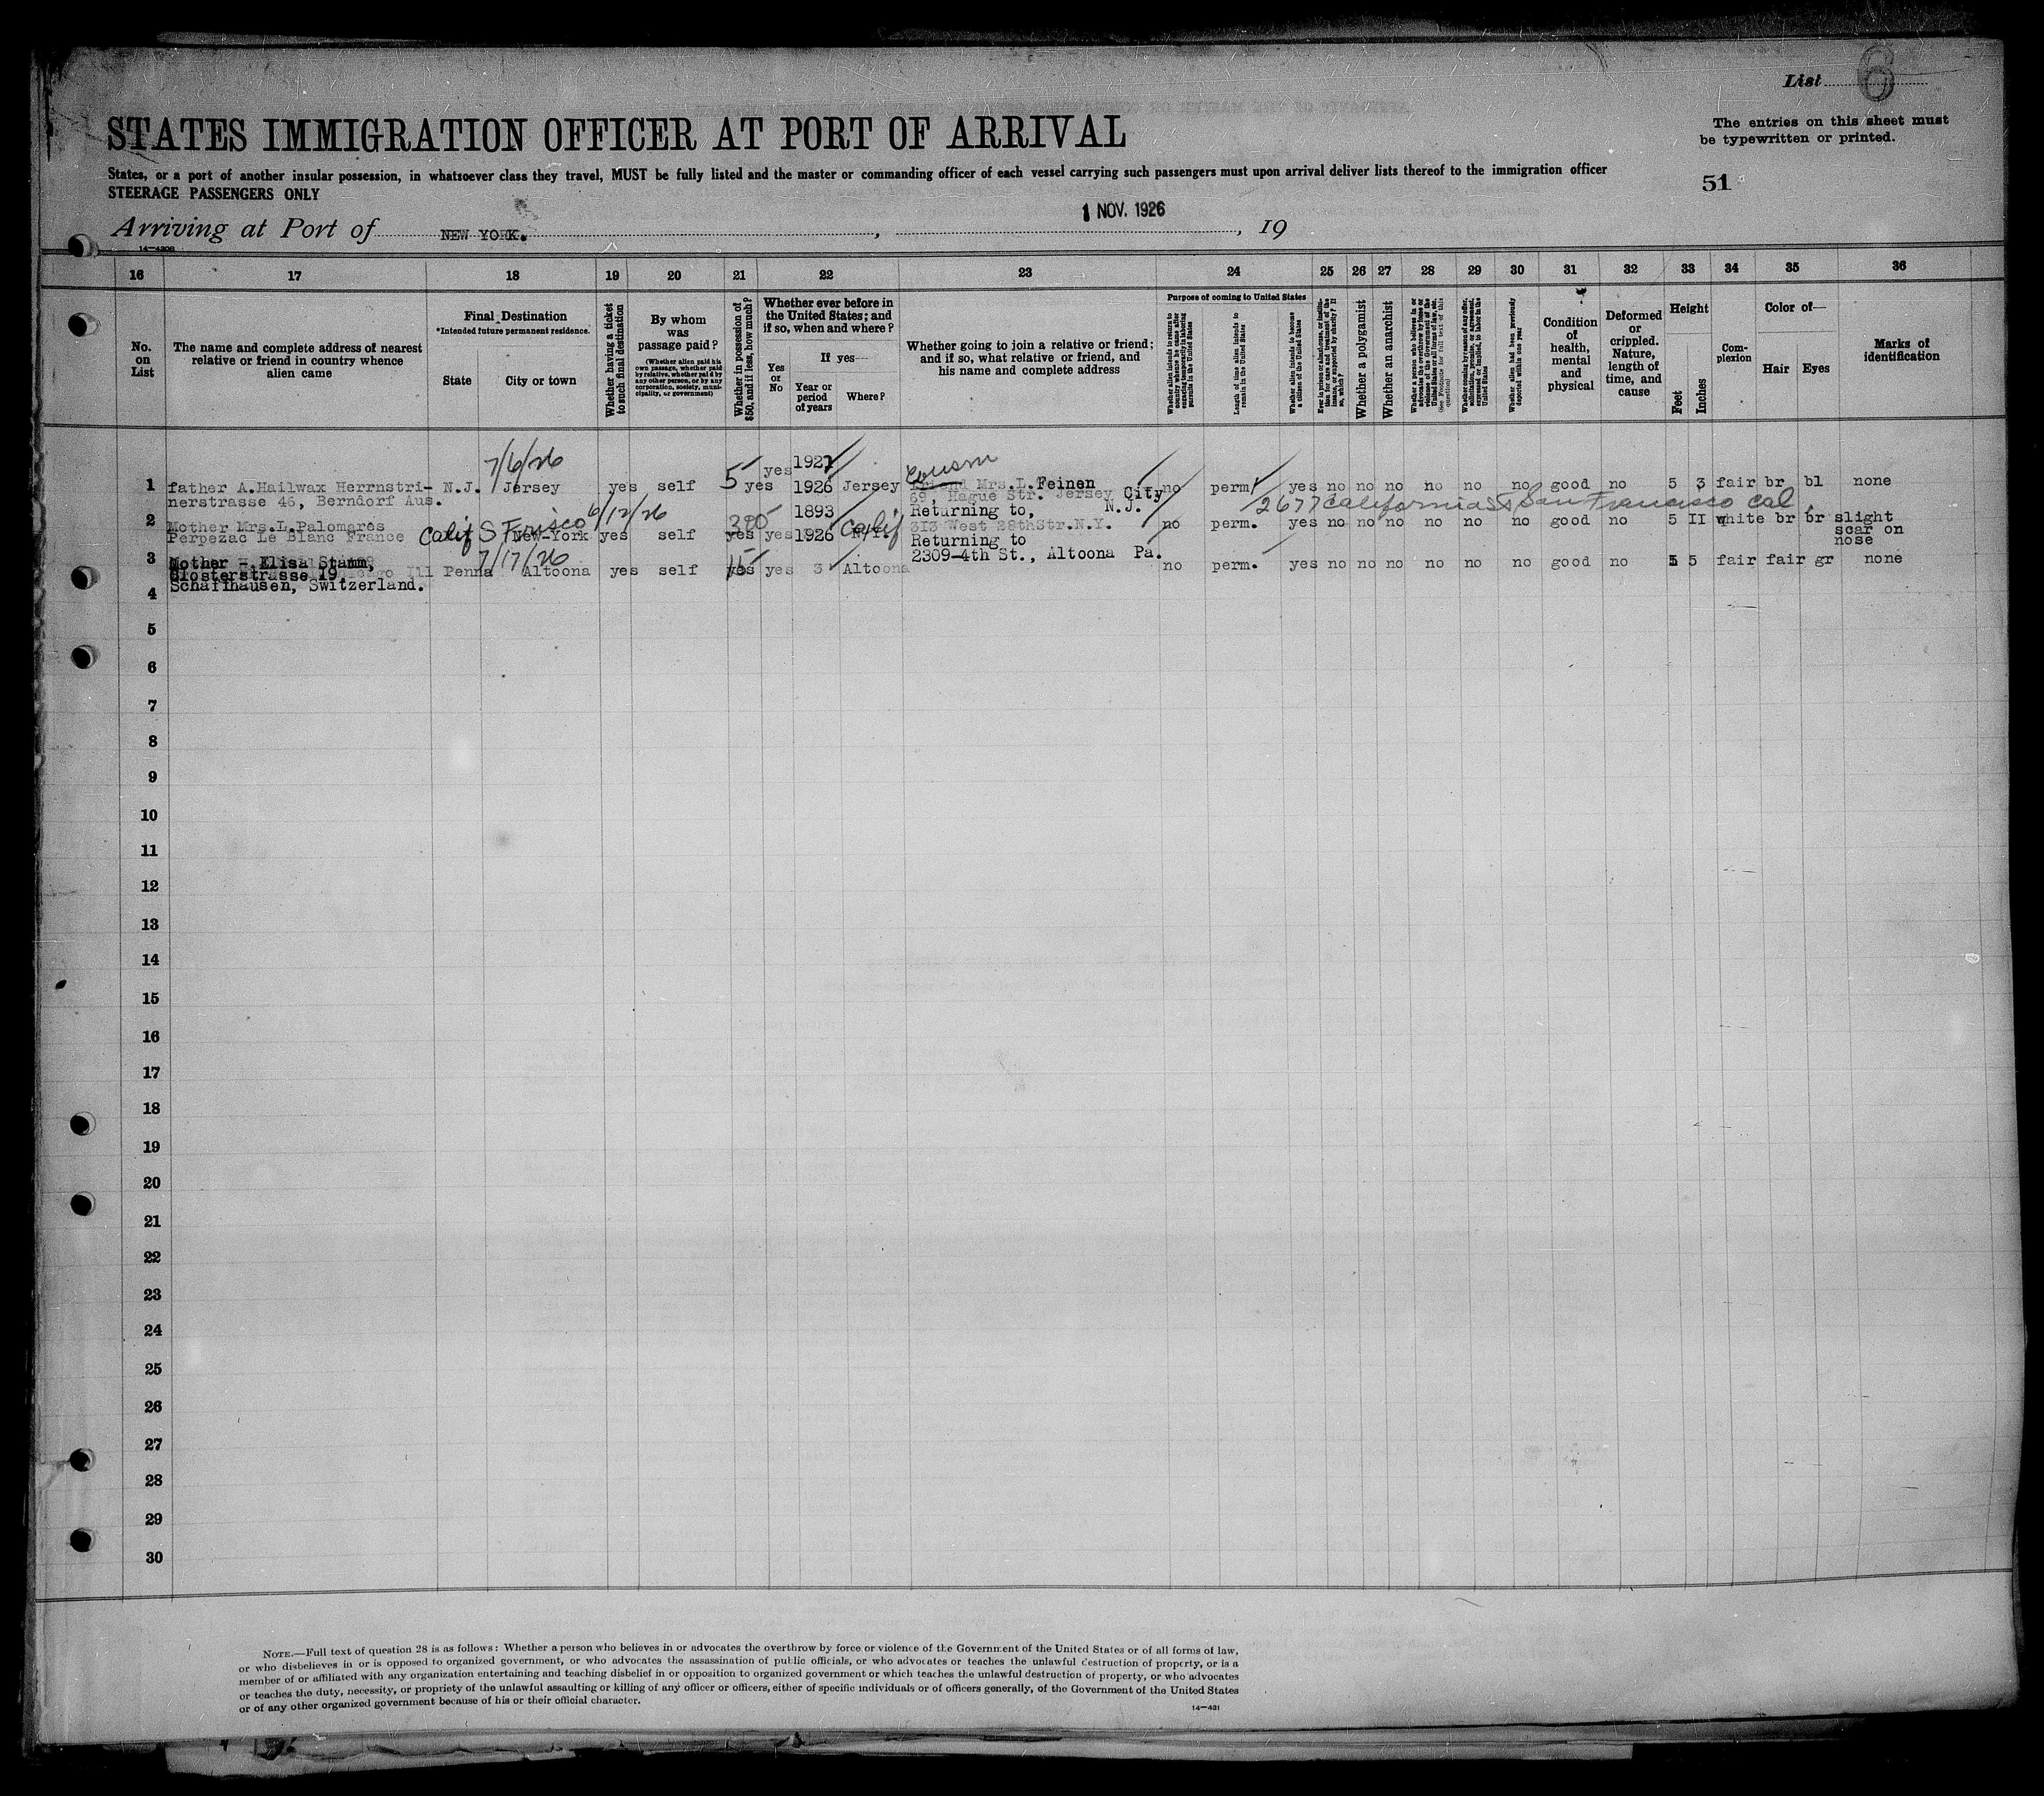 List 6
STATES IMMIGRATION OFFICER AT PORT OF ARRIVAL
The entries on this sheet must
be typewritten or printed.
States, or a port of another insular possession, in whatsoever class they travel, MUST be fully listed and the master or commanding officer of each vessel carrying such passengers must upon arrival deliver lists thereof to the immigration officer
STEERAGE PASSENGERS ONLY
51
Arriving at Port of NEW YORK. , 1 NOV. 1926 , 19
16 17 18 19 20 21 22 23 24 25 26 27 28 29 30 31 32 33 34 35 36
No. on List
The name and complete address of nearest
relative or friend in country whence
alien came
Final Destination
*Intended future permanent residence.
State
City or town
Whether having a ticket
to such final destination
By whom
was
passage paid?
(Whether alien paid his
own passage, whether paid
by relative, whether paid by
any other person, or by any
corporation, society, muni-
cipality, or government)
Whether in possession of
$50, and if less, how much?
Whether ever before in
the United States; and
if so, when and where?
Yes
or
No
If yes—
Year or
period
of years
Where?
Whether going to join a relative or friend;
and if so, what relative or friend, and
his name and complete address
Purpose of coming to United States
Whether alien intends to return to
country whence he came after
engaging temporarily in laboring
pursuits in the United States
Length of time alien intends to
remain in the United States
Whether alien intends to become
a citizen of the United States
Whether a polygamist
Whether an anarchist
Whether alien had been previously
deported within one year
Condition
of
health,
mental
and
physical
Deformed
or
crippled.
Nature,
length of
time, and
cause
Height
Feet
Inches
Com-
plexion
Color of—
Hair
Eyes
Marks of
identification
7/6/26
1 father A.Hailwax Herrnstri-
nerstrasse 46, Berndorf Aus.
N.J. Jersey yes self 5 yes yes 1921 1926 Jersey
Cousin
Friend Mrs.L.Feinen
69, Hague Str. Jersey City
N.J.
no perm yes no no no no no no good no 5 3 fair br bl none
6/12/26
2677 California St San Francisco Cal.
2 Mother Mrs.L.Palomares
Perpezac Le Blanc France
Calif S Frisco New-York yes self 320 yes yes 1893 1926 Calif N.Y.
Returning to,
313 West 28thStr.N.Y.
no perm. yes no no no no no no good no 5 II white br br slight
scar on
nose
7/17/26
3 Mother - Elisa Stamm,
Closterstrasse 19
Schaffhausen, Switzerland.
Penna Altoona yes self 15 yes yes 3 Altoona
Returning to
2309-4th St., Altoona Pa.
no perm. yes no no no no no no good no 5 5 fair fair gr none
4
5
6
7
8
9
10
11
12
13
14
15
16
17
18
19
20
21
22
23
24
25
26
27
28
29
30
NOTE.—Full text of question 28 is as follows: Whether a person who believes in or advocates the overthrow by force or violence of the Government of the United States or of all forms of law,
or who disbelieves in or is opposed to organized government, or who advocates the assassination of public officials, or who advocates or teaches the unlawful destruction of property, or is a
member of or affiliated with any organization entertaining and teaching disbelief in or opposition to organized government or which teaches the unlawful destruction of property, or who advocates
or teaches the duty, necessity, or propriety of the unlawful assaulting or killing of any officer or officers, either of specific individuals or of officers generally, of the Government of the United States
or of any other organized government because of his or their official character.
14—431